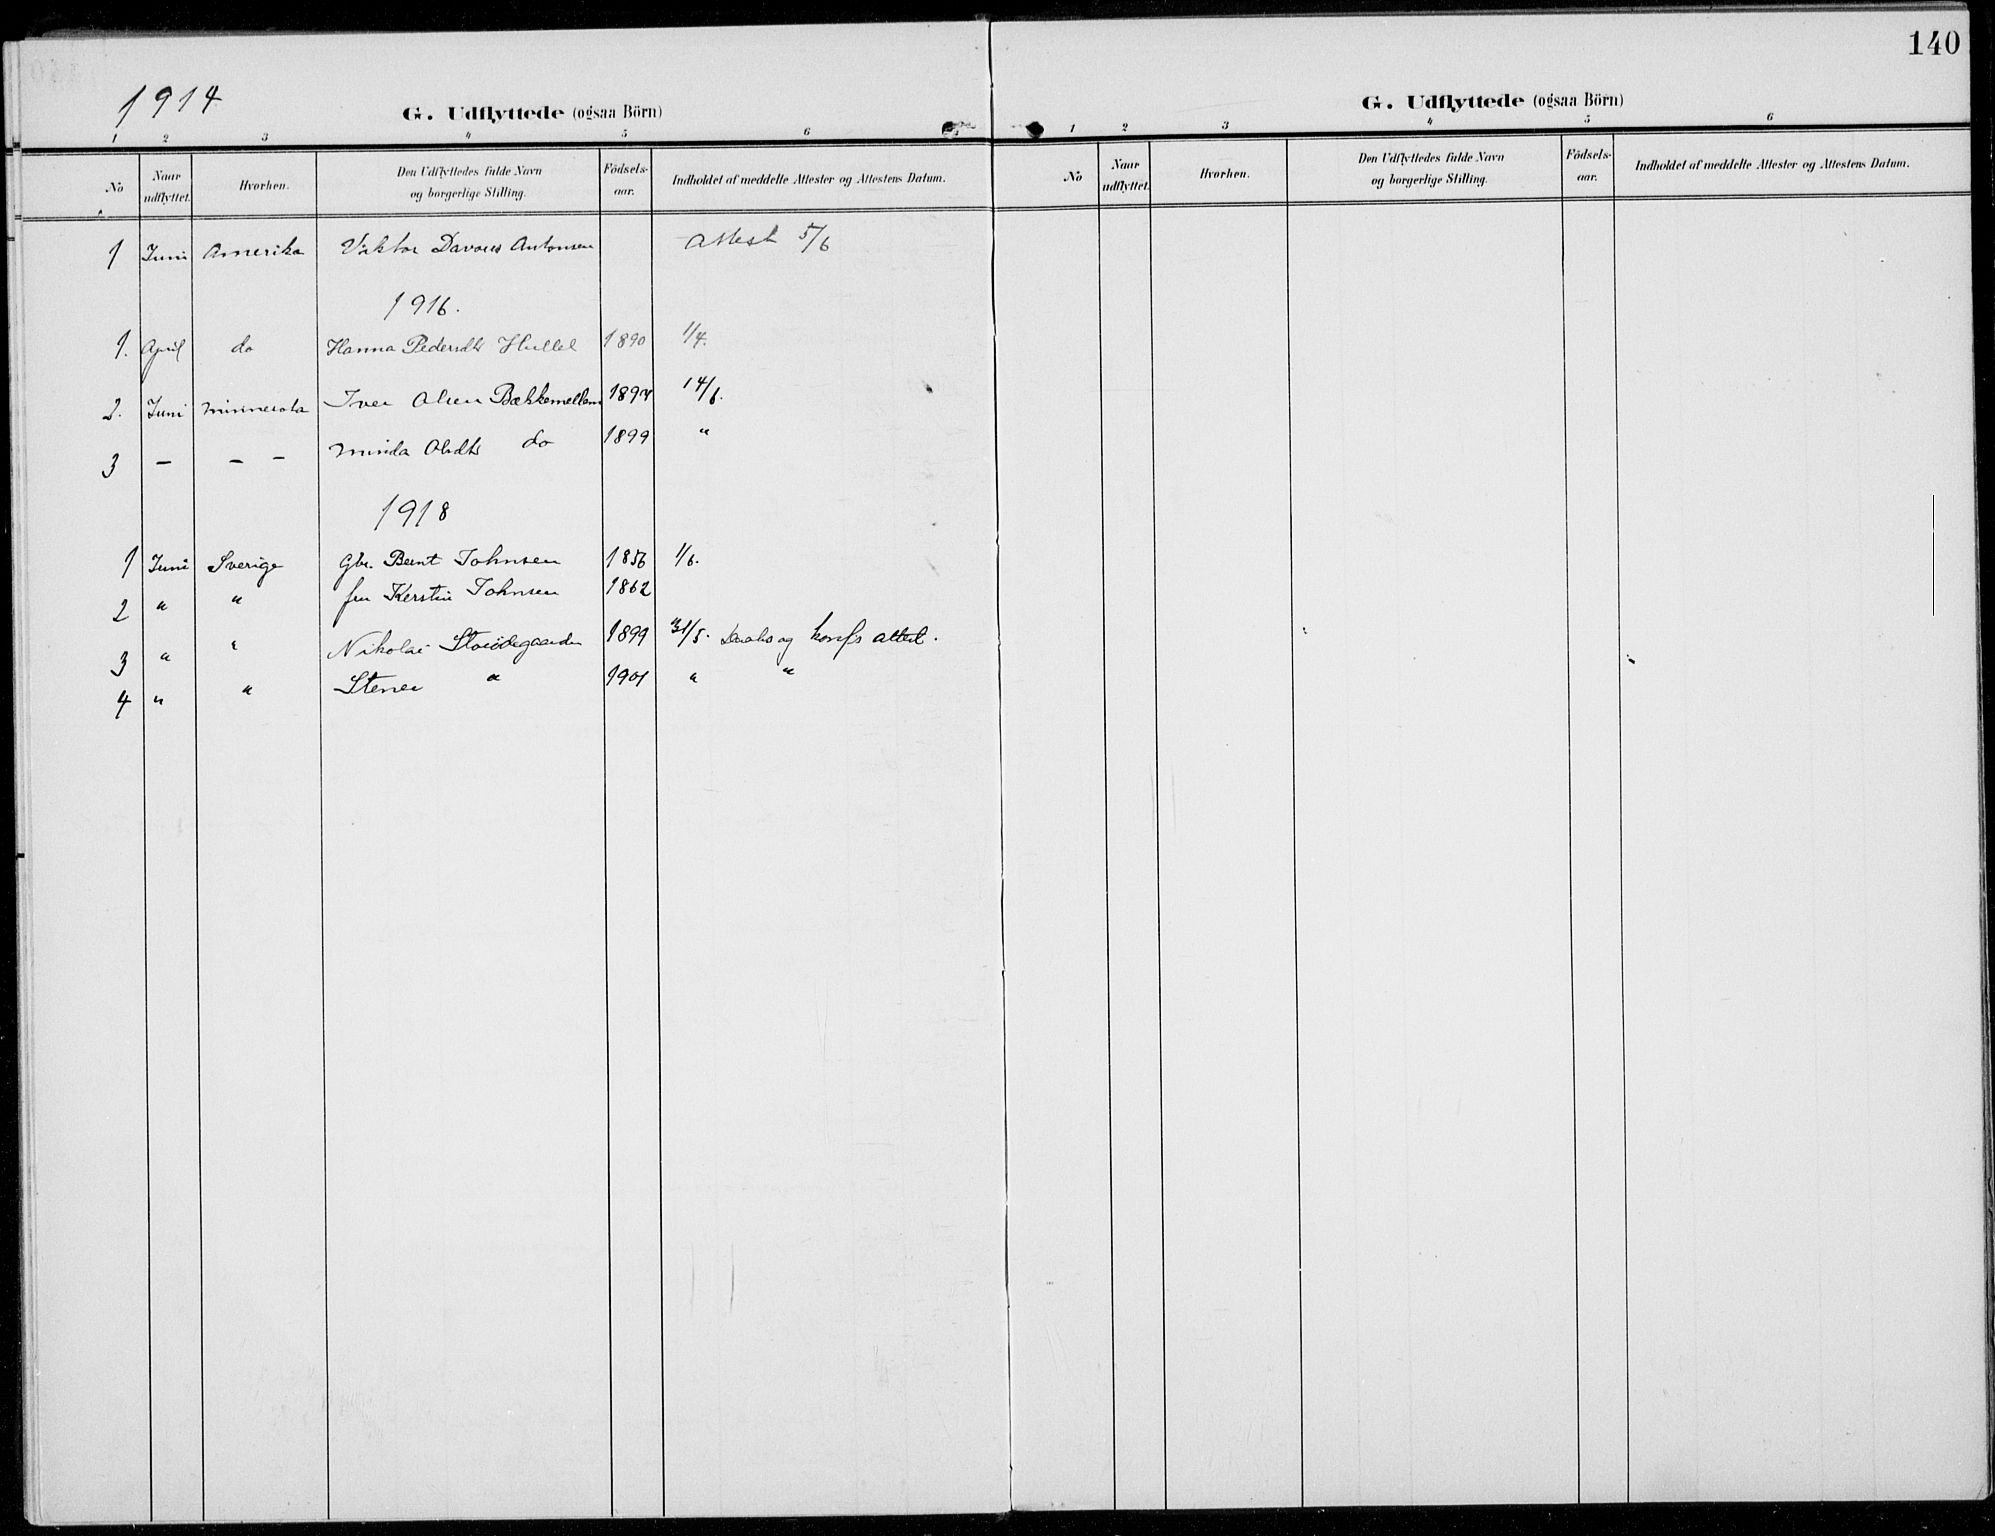 140
1914
G. Udflyttede (ogsaa Börn)
1 2 3 4 5 6
No
Naar udflyttet.
Hvorhen.
Den Udflyttedes fulde Navn
og borgerlige Stilling.
Födsels-
aar.
Indholdet af meddelte Attester og Attestens Datum.
1 Juni Amerika Viktor Antonsen Attest 5/6
1916.
1. April do Hanna Pedersdtr 1890 1/4.
2. Juni Minnesota Iver Olsen Bækkemellem 14/6.
3 – – – Minda Olsdtr do 1899 "
1918
1 Juni Sverige Gbr. Bernt Johnsen 1856 1/6.
2 " " fru Kerstin Johnsen 1862
3 " " Nikolai 1899 31/5. Daabs og konfs attest.
4 " " Stener " 1901 " "
G. Udflyttede (ogsaa Börn)
1 2 3 4 5 6
No
Naar
udflyttet.
Hvorhen.
Den Udflyttedes fulde Navn
og borgerlige Stilling.
Födsels-
aar.
Indholdet af meddelte Attester og Attestens Datum.